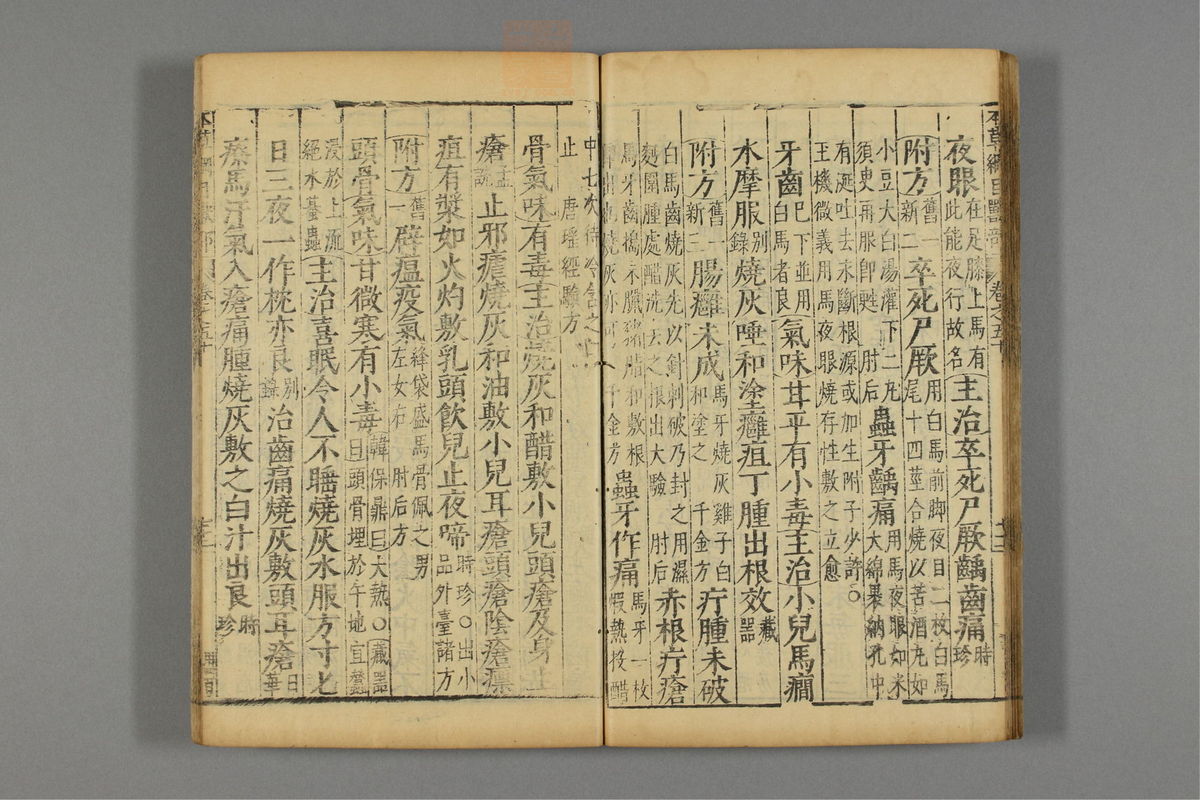 本草綱目獸部 卷之五十 十二
夜眼在足膝上馬有此能夜行故名主治卒死尸厥齲齒痛時珍
附方舊一新二卒死尸厥用白馬前脚夜目二枚白馬尾十四莖合燒以苦酒丸如
小豆大白湯灌下二丸須臾再服即甦 肘后 蟲牙齲痛用馬夜眼如米大綿裹納孔中
有涎吐去未斷根源或加生附子少許○王機微義用馬夜眼燒存性敷之立愈
牙齒已下並用白馬者良氣味甘平有小毒主治小兒馬癇
水摩服別錄燒灰唾和塗癰疽丁腫出根效藏器
附方舊一新三腸癰未成馬牙燒灰雞子白和塗之 千金方 疔腫未破
白馬齒燒灰先以針刺破乃封之用濕麪圍腫處醋洗去之根出大驗 肘后 赤根疔瘡
馬牙齒搗末臘豬脂和敷根即出也燒灰亦可 千金方 蟲牙作痛馬牙一枚煆熱投醋
中七次待冷含之即止 唐瑤經驗方
骨氣味有毒主治燒灰和醋敷小兒頭瘡及身上
瘡孟詵止邪瘧燒灰和油敷小兒耳瘡頭瘡陰瘡瘭
疽有漿如火灼敷乳頭飲兒止夜啼時珍○出小品外臺諸方
附方舊一辟瘟疫氣絳袋盛馬骨佩之男左女右 肘后方
頭骨氣味甘微寒有小毒韓保昇曰大熱○藏器曰頭骨埋於午地宜蠶
浸於上流絕水蜞蟲主治喜眠令人不睡燒灰水服方寸匕
日三夜一作枕亦良別錄治齒痛燒灰敷頭耳瘡日華
瘵馬汗氣入瘡痛腫燒灰敷之白汁出良時珍